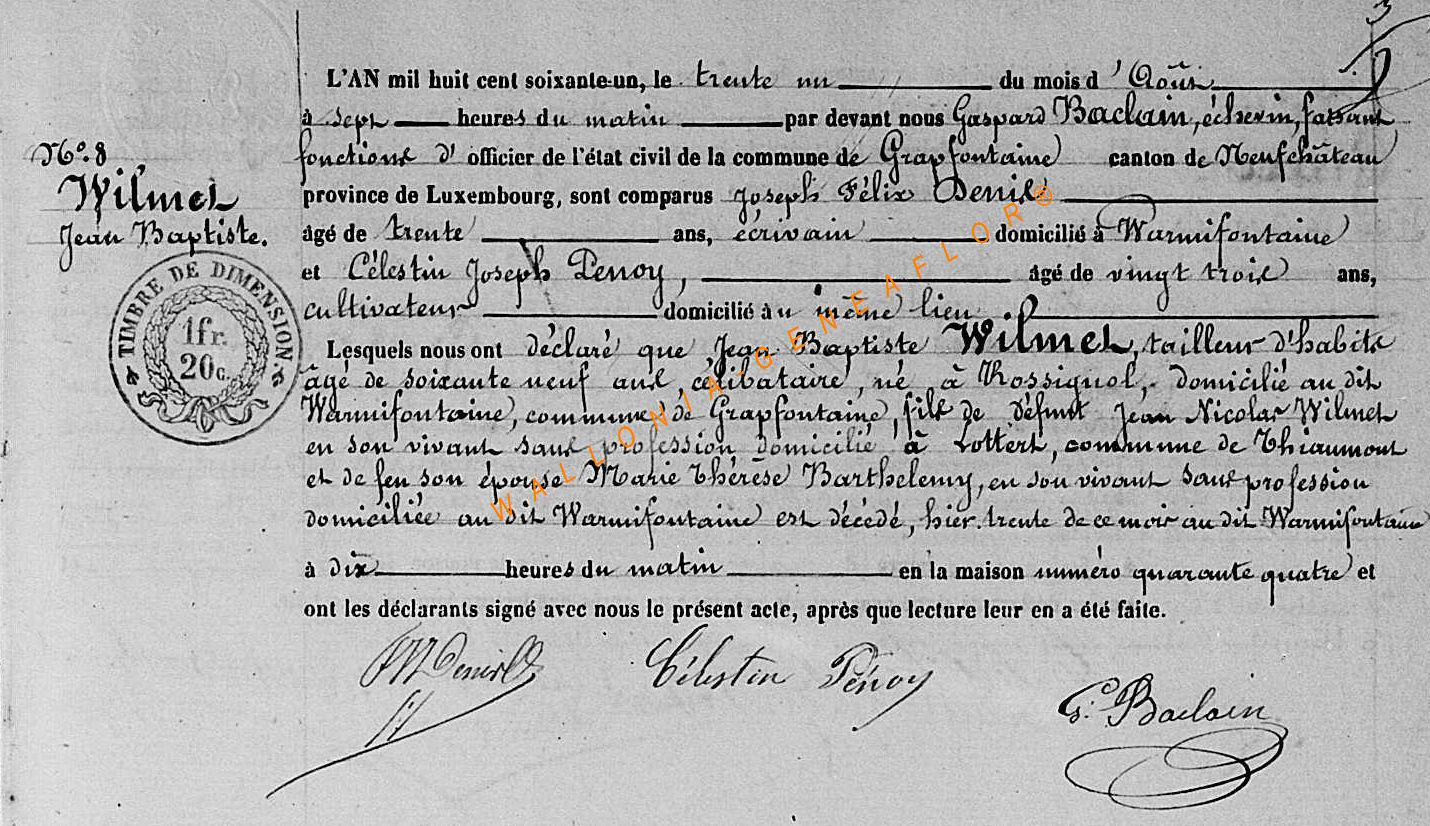 3
L'AN mil huit cent soixante-un, le trente un du mois d'Août
à sept heures du matin par devant nous Gaspard Baclain, échevin, faisant
fonctions d'officier de l'état civil de la commune de Grapfontaine canton de Neufchâteau
province de Luxembourg, sont comparus Joseph Félix Denis
âgé de trente ans, écrivain domicilié à Warmifontaine
et Célestin Joseph Penoy, âgé de vingt trois ans,
cultivateur domicilié au même lieu
Lesquels nous ont déclaré que Jean Baptiste Wilmet, tailleur d'habits
âgé de soixante neuf ans, célibataire, né à Rossignol, domicilié au dit
Warmifontaine, commune de Grapfontaine, fils de défunt Jean Nicolas Wilmet
en son vivant sans profession domicilié à Lottert, commune de Thiaumont
et de feu son épouse Marie Thérèse Barthelemy, en son vivant sans profession
domiciliée au dit Warmifontaine est décédé, hier trente de ce mois au dit Warmifontaine
à dix heures du matin en la maison numéro quarante quatre et
ont les déclarants signé avec nous le présent acte, après que lecture leur en a été faite.
N°. 8
Wilmet
Jean Baptiste.
TIMBRE DE DIMENSION.
1fr.
20c.
WALLONIA-GENEAFLOR®
Célestin Pénoy
G. Baclain